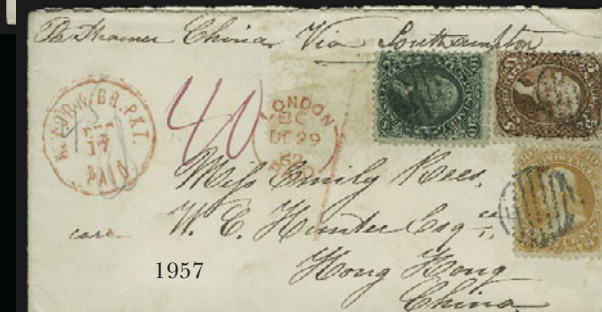 Steamer China Via Southampton
N. YORK BR. PKT.
DEC
17
PAID
40
LONDON
EC
DE 29
PAID
Miss Emily Rees,
care W. C. Hunter Esqr.,
Hong Kong
China
1957